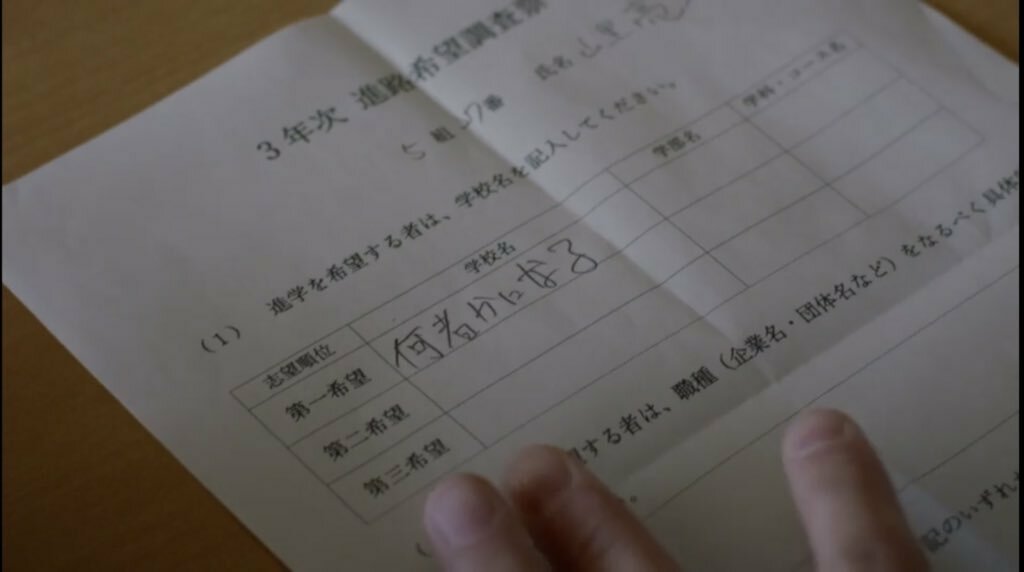 3年次 進路希望調査票
5組 27番 氏名 山里亮
(1) 進学を希望する者は、学校名を記入してください。
志望順位 学校名 学部名 学科・コース名
第一希望 何者かになる
第二希望
第三希望
望する者は、職種(企業名・団体名など)をなるべく具体
記のいずれ